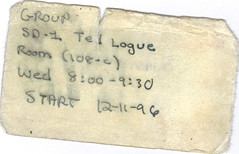 GROUP
SD-1 Tel Logue
Room (108-c)
Wed 8:00-9:30
START 12-11-96